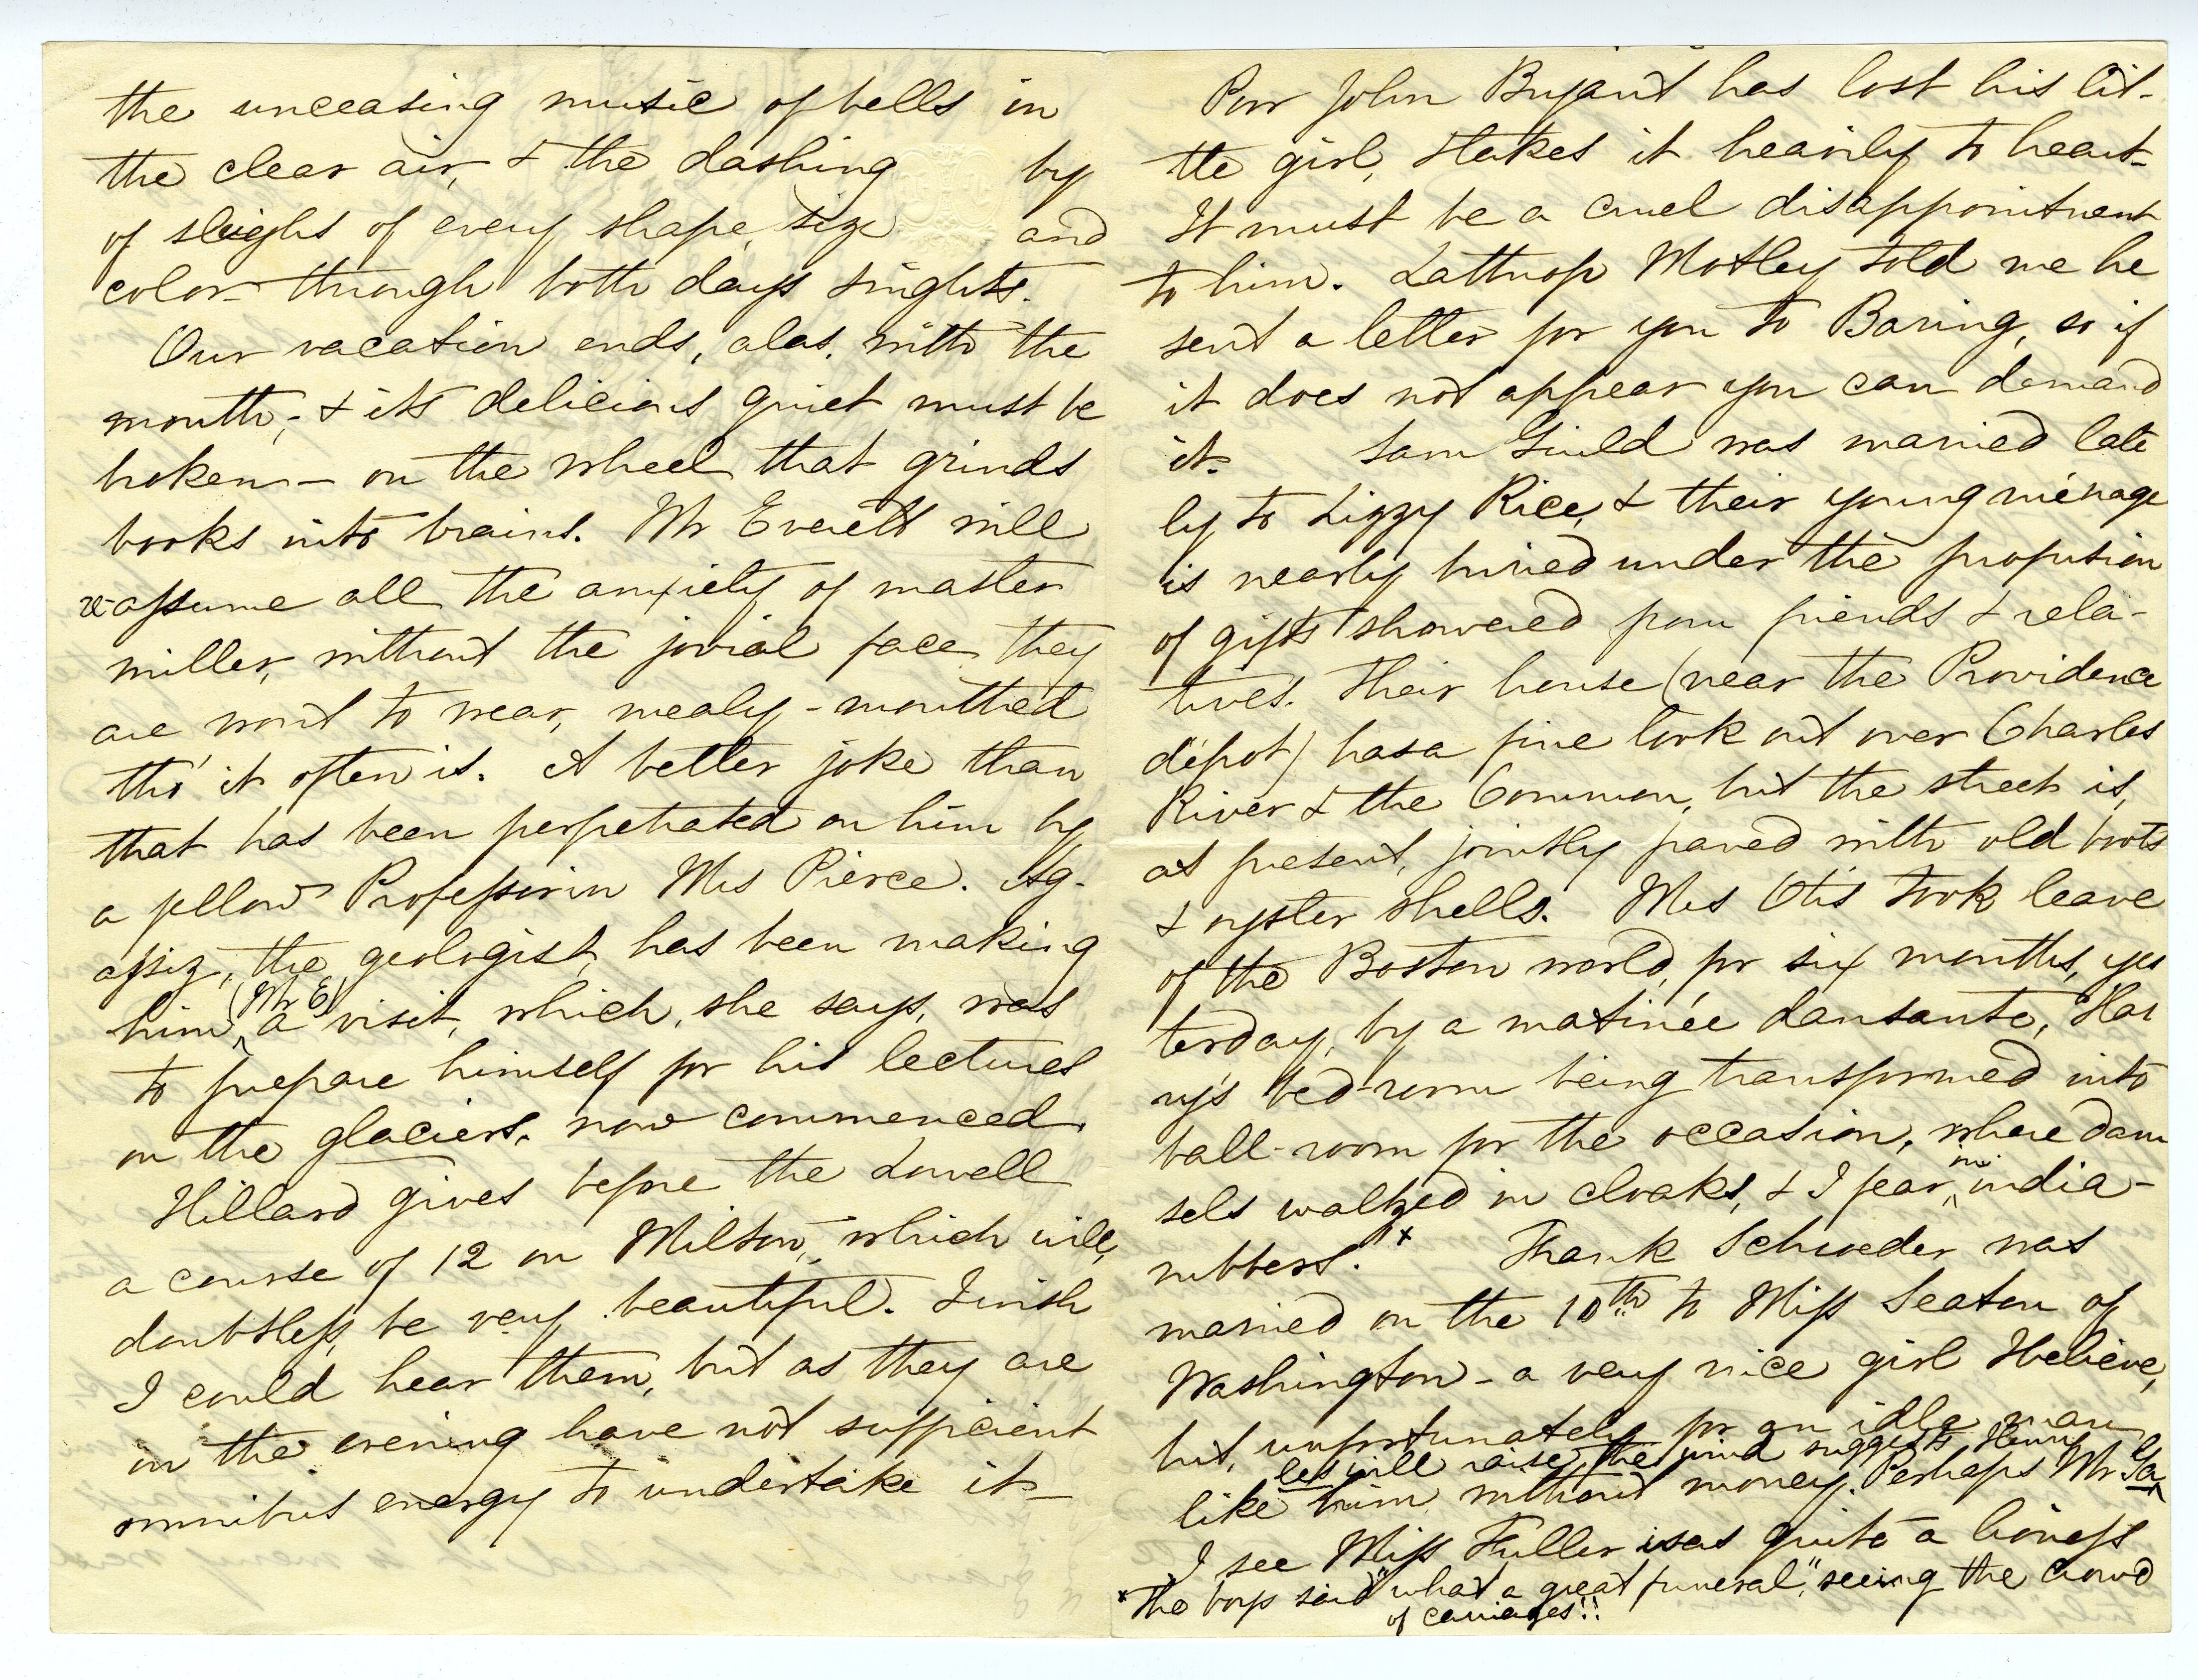 the unceasing music of bells in
the clear air, & the dashing by
of sleighs of every shape, size and
color through both days & nights.
Our vacation ends, alas, with the
month, & its delicious quiet must be
broken – on the wheel that grinds
books into brains. Mr Everett will
re-assume all the anxiety of master
miller, without the jovial face they
are wont to wear, mealy-mouthed
tho' it often is. A better joke than
that has been perpetrated on him by
a fellow Professor in Mrs Pierce. Ag-
assiz, the geologist, has been making
him, (Mr E) a visit, which, she says, was
to prepare himself for his lectures
on the glaciers, now commenced.
Hillard gives before the Lowell
a course of 12 on Milton, which will,
doubtless, be very beautiful. I wish
I could hear them, but as they are
in the evening have not sufficient
omnibus energy to undertake it –
Poor John Bryant has lost his lit-
tle girl, & takes it heavily to heart –
It must be a cruel disappointment
to him. Lathrop Motley told me he
sent a letter for you to Baring, so if
it does not appear you can demand
it. Sam Guild was married late
ly to Lizzy Rice, & their young ménage
is nearly buried under the profusion
of gifts showered from friends & rela-
tives. Their house (near the Providence
dépot) has a fine look out over Charles
River & the Common, but the street is,
at present, jointly paved with old boots
& oyster shells. Mrs Otis took leave
of the Boston world, for six months, yes
terday, by a matinée dansante, Har
ry's bed-room being transformed into
ball-room for the occasion, where dam
sels waltzed in cloaks, & I fear, in india-
rubbers." x Frank Schroeder was
married on the 10th to Miss Seaton of
Washington – a very nice girl I believe,
but, unfortunately for an idle man
like him, without money. Perhaps Mr Ga
les will raise the wind suggests Henry
I see Miss Fuller is as quite a lioness
x The boys said "what a great funeral", seeing the crowd
of carriages!!